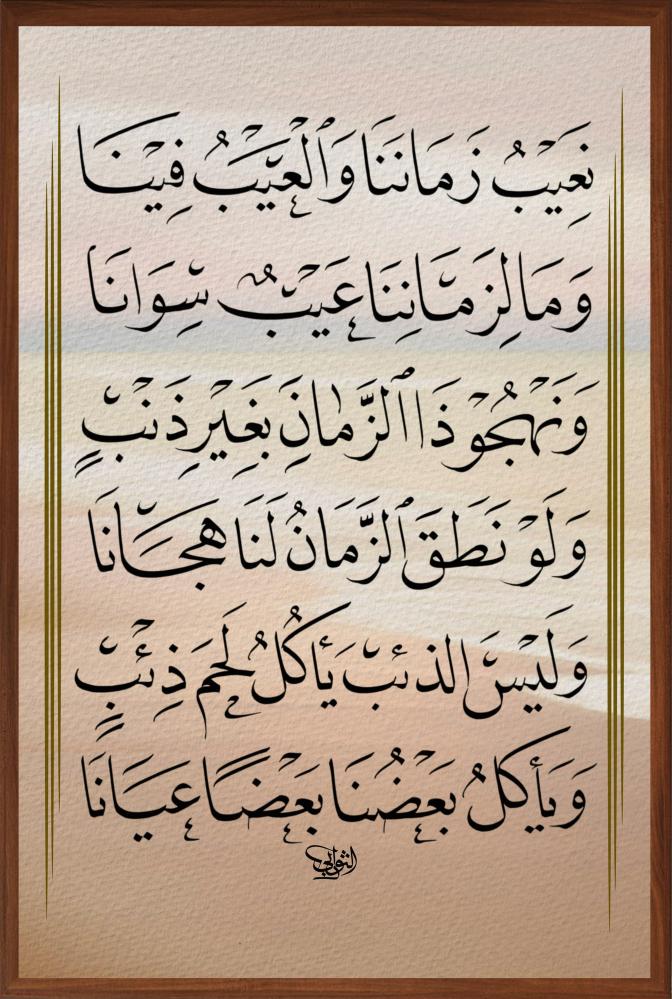 نَعِيْبُ زَمَانَنَا وَٱلْعَيْبُ فِيْنَا
وَمَا لِزَمَانِنَا عَيْبٌ سِوَانَا
وَنَهْجُوْ ذَا ٱلزَّمَانِ بِغَيْرِ ذَنْبٍ
وَلَوْ نَطَقَ ٱلزَّمَانُ لَنَا هجَانَا
وَلَيْسَ الذئبُ يَأكُلُ لَحمَ ذِئْبٍ
وَيَأكُلُ بَعْضُنَا بَعْضًا عَيَانَا